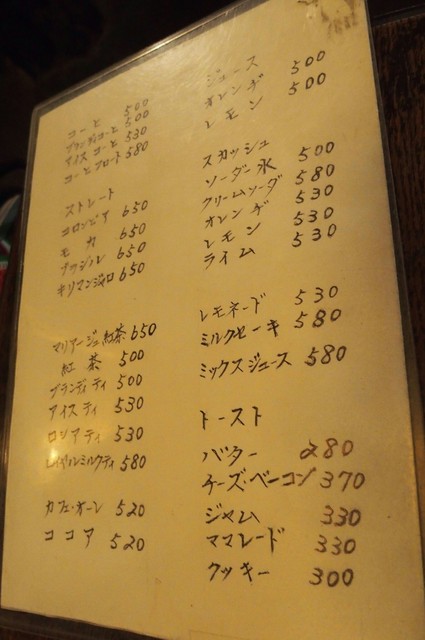 コーヒ 500
ブランディコーヒ 500
アイスコーヒ 530
コーヒフロート 580
ストレート
コロンビア 650
モカ 650
ブラジル 650
キリマンジャロ 650
マリアージュ紅茶 650
紅茶 500
ブランディティ 500
アイスティ 530
ロシアティ 530
ロイヤルミルクティ 580
カフェ・オーレ 520
ココア 520
ジュース
オレンヂ 500
レモン 500
スカッシュ
ソーダー水 500
クリームソーダ 580
オレンヂ 530
レモン 530
ライム 530
レモネード 530
ミルクセーキ 580
ミックスジュース 580
トースト
バター 280
チーズ・ベーコン 370
ジャム 330
ママレード 330
クッキー 300